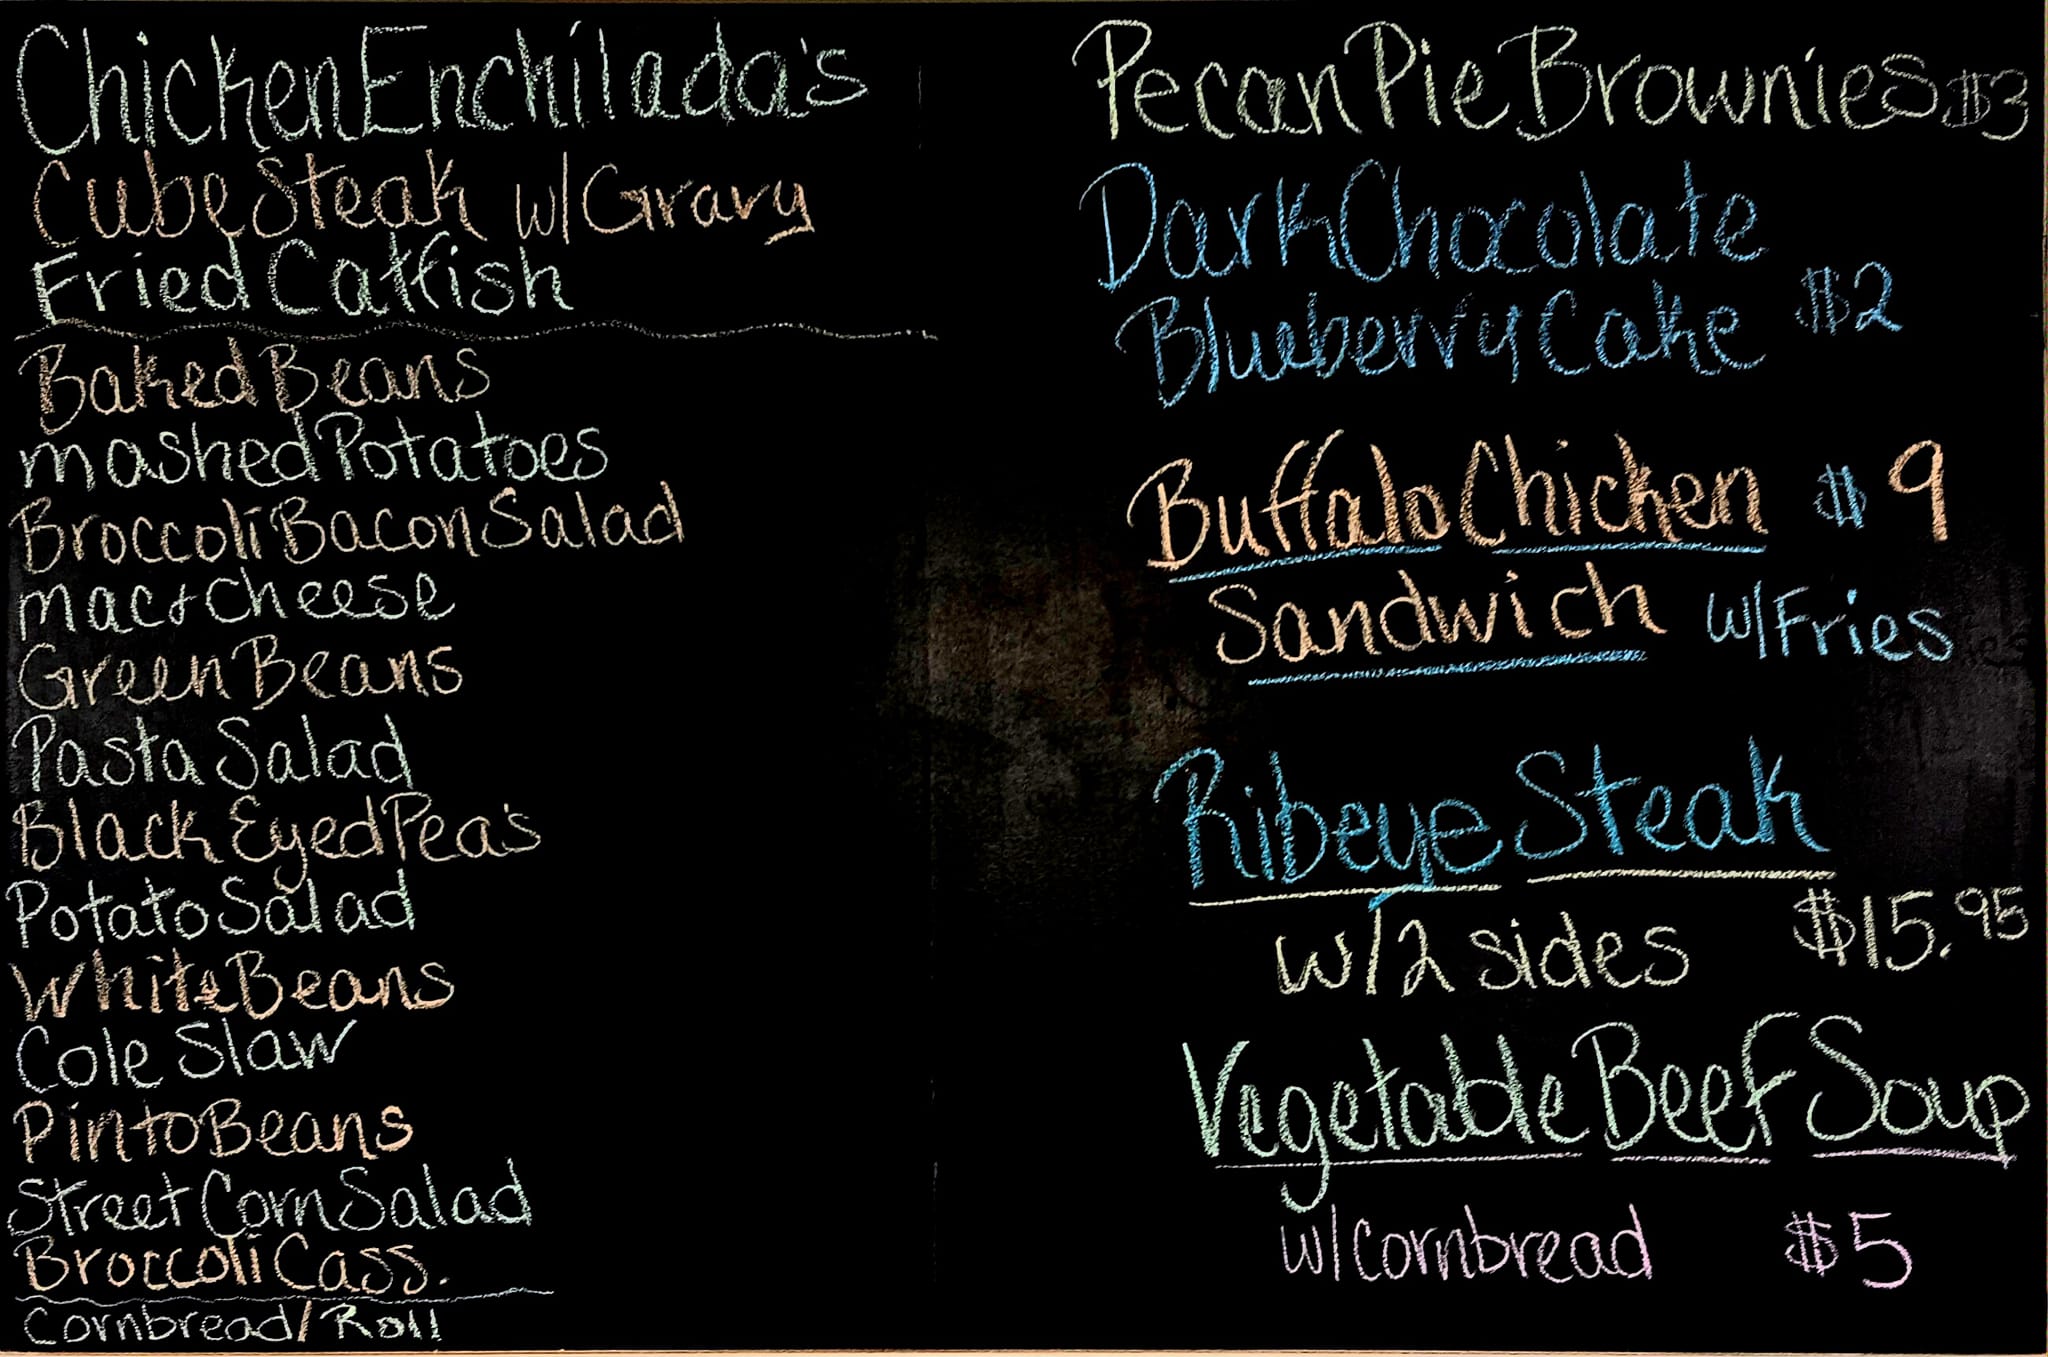 Chicken Enchilada's
Cube Steak w/ Gravy
Fried Catfish
Baked Beans
mashed Potatoes
Broccoli Bacon Salad
mac & cheese
Green Beans
Pasta Salad
Black Eyed Pea's
Potato Salad
White Beans
Cole Slaw
Pinto Beans
Street Corn Salad
Broccoli Cass.
Cornbread/Roll
Pecan Pie Brownies $3
Dark Chocolate
Blueberry Cake $2
Buffalo Chicken $9
Sandwich w/ Fries
Ribeye Steak
w/ 2 sides $15.95
Vegetable Beef Soup
w/ cornbread $5